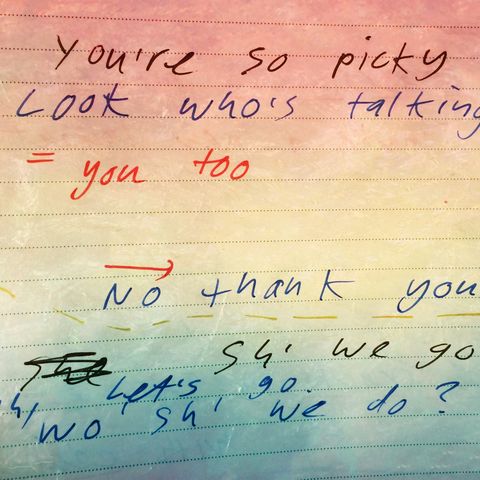 You're so picky
Look who's talking
= you too
No thank you
Sh' we go
Let's go.
wo' sh' we do?